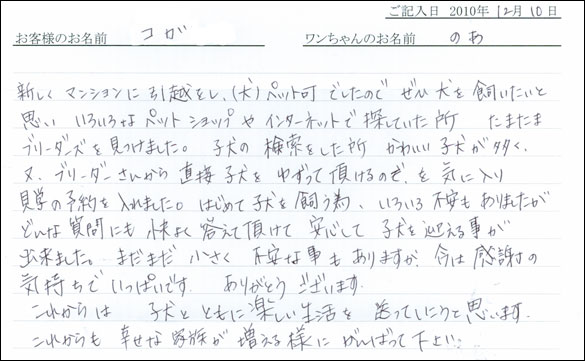 ご記入日 2010年 12月 10日
お客様のお名前 コガ ワンちゃんのお名前 のあ
新しく マンションに 引越をし、(犬)ペット可 でしたので ぜひ 犬を 飼いたいと
思い いろいろな ペットショップや インターネットで 探していた所 たまたま
ブリーダーズを 見つけました。 子犬の 検索をした所 かわいい 子犬が多く、
又、ブリーダーさんから 直接 子犬を ゆずって 頂けるので、を 気に入り
見学の予約を 入れました。はじめて 子犬を 飼う為、いろいろ 不安も ありましたが
どんな 質問にも 快よく 答えて頂けて 安心して 子犬を 迎える事が
出来ました。 まだまだ 小さく 不安な事も ありますが 今は 感謝の
気持ちで いっぱいです。 ありがとう ございます。
これからは 子犬と ともに 楽しい 生活を 送っていこうと 思います。
これからも 幸せな 家族が 増える様に がんばって 下さい。